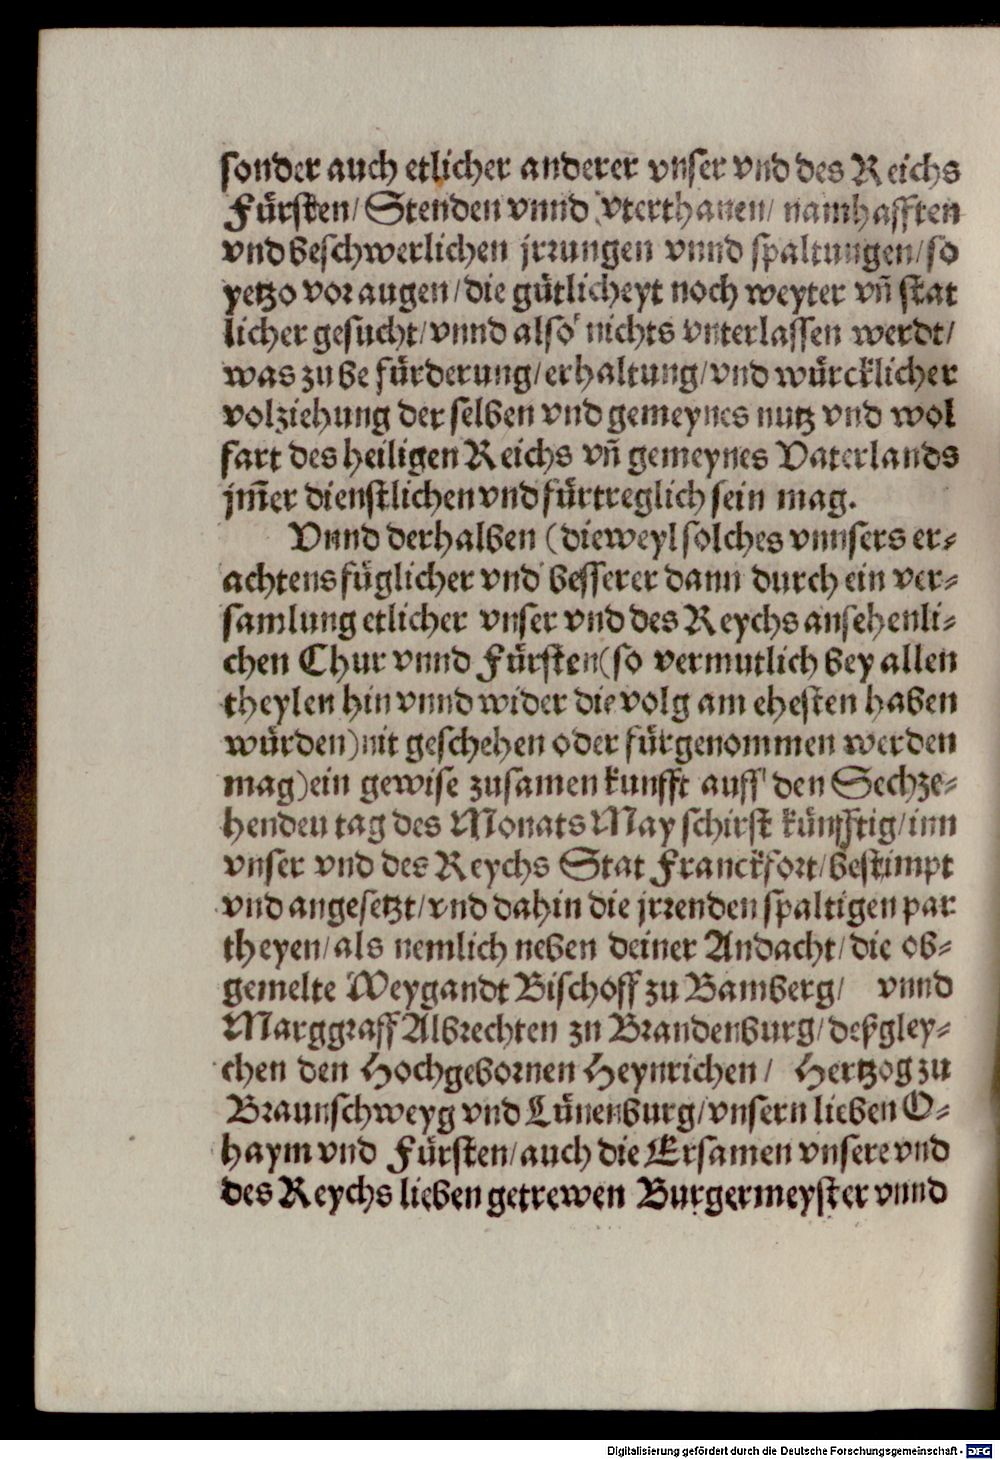 sonder auch etlicher anderer vnser vnd des Reichs
Fürsten/ Stenden vnnd vterthanen/ namhafften
vnd beschwerlichen jrrungen vnnd spaltungen/ so
yetzo vor augen/ die gütlicheyt noch weyter vn̄ stat
licher gesucht/ vnnd also nichts vnterlassen werdt/
was zu be fürderung/ erhaltung/ vnd würcklicher
volziehung der selben vnd gemeynes nutz vnd wol
fart des heiligen Reichs vn̄ gemeynes Vaterlands
jm̄er dienstlichen vnd fürtreglich sein mag.
Vnnd derhalben (dieweyl solches vnnsers er-
achtens füglicher vnd besserer dann durch ein ver-
samlung etlicher vnser vnd des Reychs ansehenli-
chen Chur vnnd Fürsten (so vermutlich bey allen
theylen hin vnnd wider die volg am ehesten haben
würden) nit geschehen oder fürgenommen werden
mag) ein gewise zusamen kunfft auff den Sechze-
henden tag des Monats May schirst künfftig/ inn
vnser vnd des Reychs Stat Franckfort/ bestimpt
vnd angesetzt/ vnd dahin die jrrenden spaltigen par
theyen/ als nemlich neben deiner Andacht/ die ob-
gemelte Weygandt Bischoff zu Bamberg/ vnnd
Marggraff Albrechten zu Brandenburg/ deßgley-
chen den Hochgebornen Heynrichen/ Hertzog zu
Braunschweyg vnd Lünenburg/ vnsern lieben O-
haym vnd Fürsten/ auch die Ersamen vnsere vnd
des Reychs lieben getrewen Burgermeyster vnnd
Digitalisierung gefördert durch die Deutsche Forschungsgemeinschaft - DFG